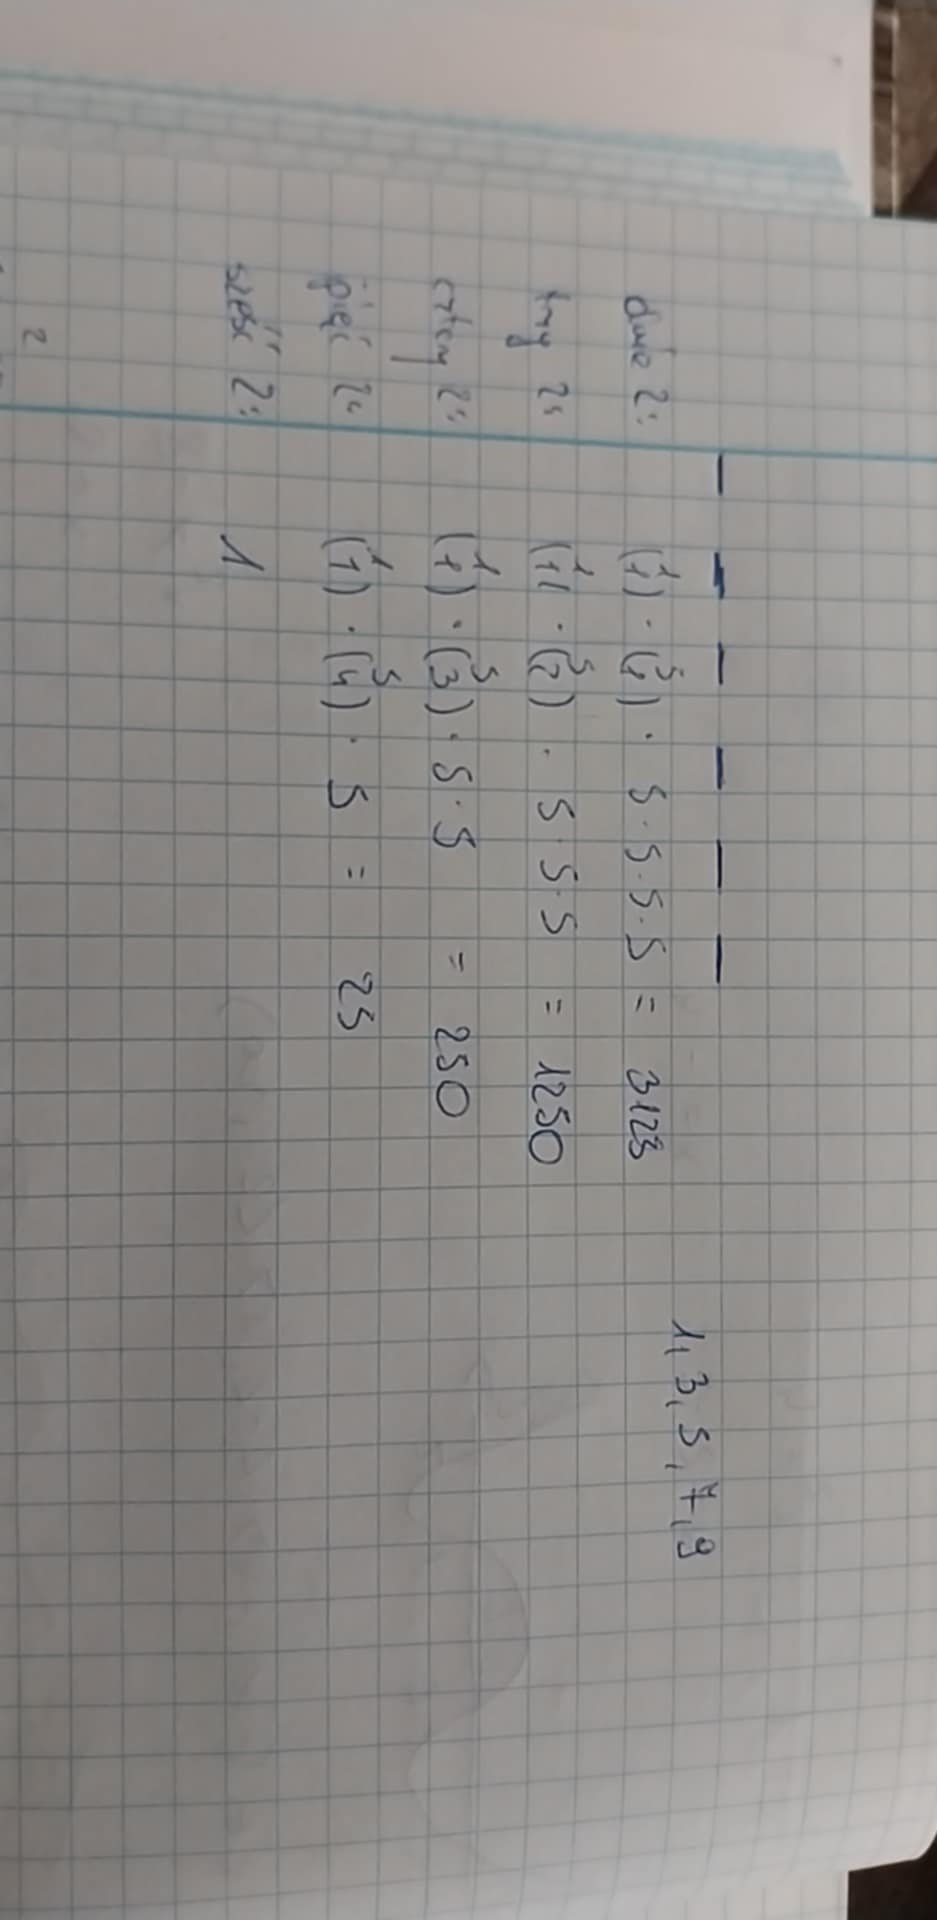 _ _ _ _ _ _
1, 3, 5, 7, 9
dwie 2: (1 1) · (5 1) · 5 · 5 · 5 · 5 = 3125
trzy 2: (1 1) · (5 2) · 5 · 5 · 5 = 1250
cztery 2: (1 1) · (5 3) · 5 · 5 = 250
pięć 2: (1 1) · (5 4) · 5 = 25
sześć 2: 1
2